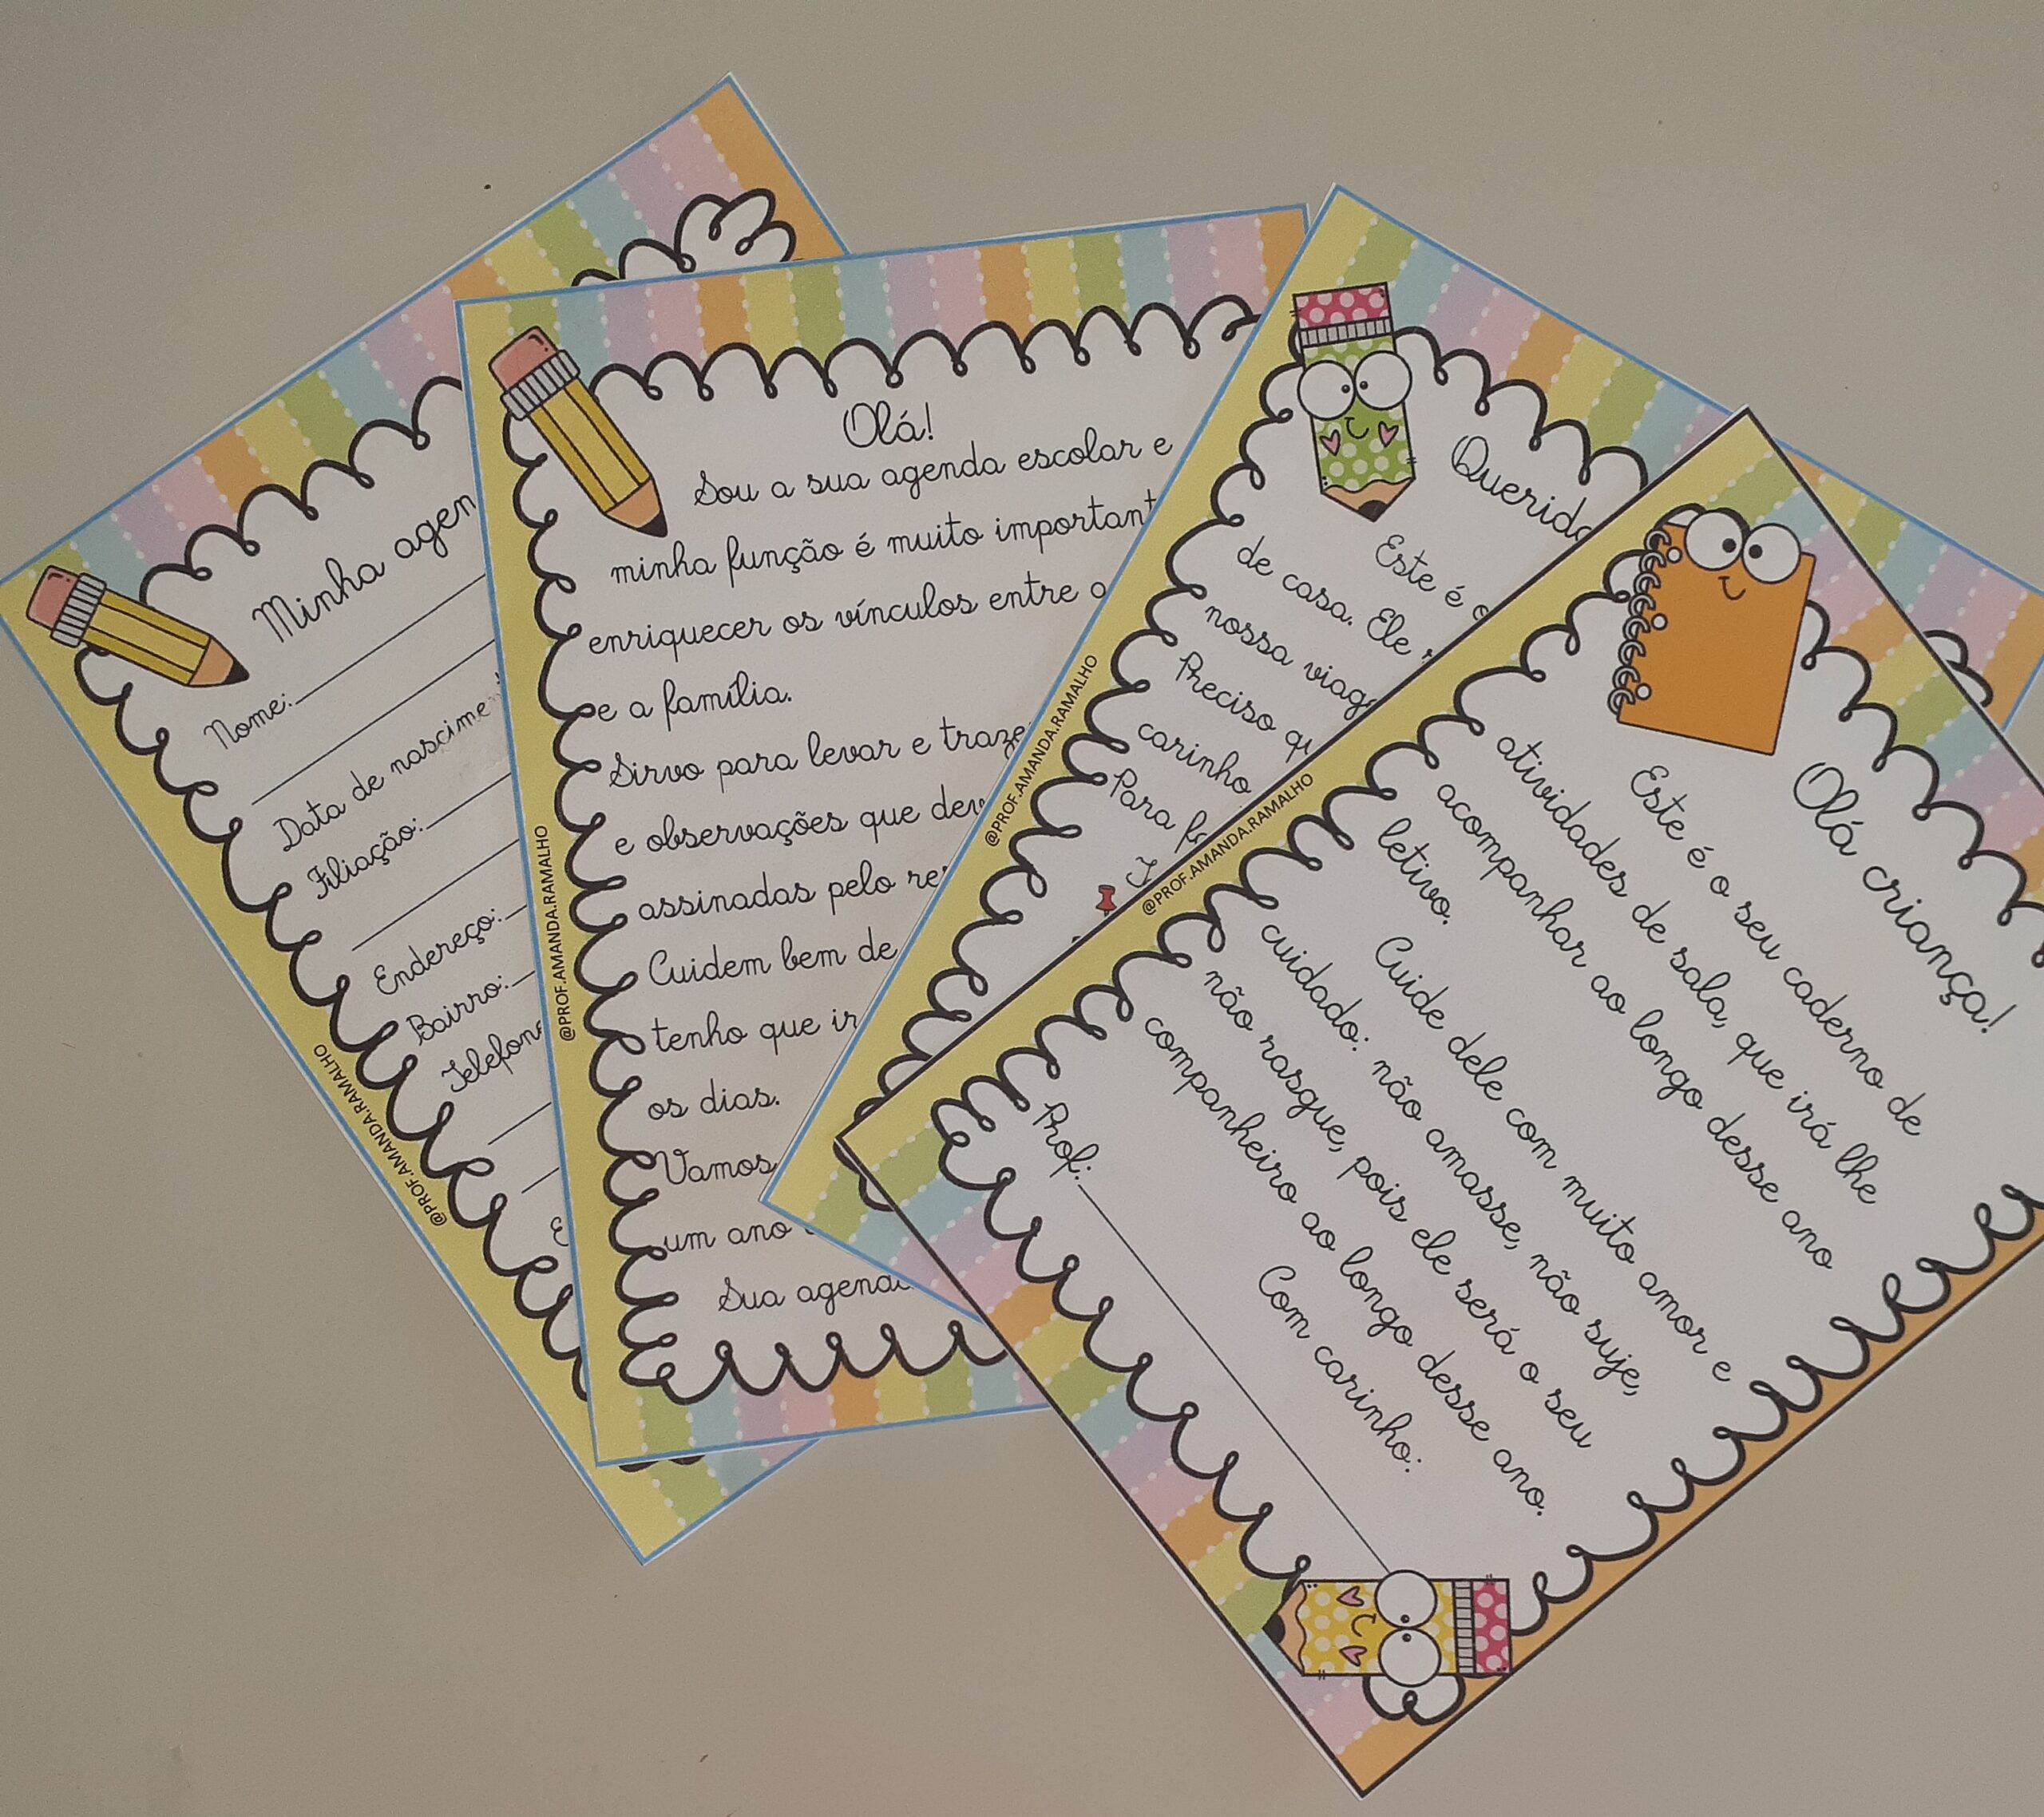 Minha
Nome:
Data de
Filiação:
Endereço:
Bairro:
@PROF.AMANDA.RAMALHO
@PROF.AMANDA.RAMALHO
Olá!
Sou a sua agenda escolar e
minha função é muito
enriquecer os vínculos entre a
e a família.
Sirvo para levar e
e observações que
assinadas pelo
Cuidem bem de
tenho que ir
os dias.
Vamos
um ano
Sua
@PROF.AMANDA.RAMALHO
Este é o
de casa. Ele
nossa
Preciso
carinho
Para
@PROF.AMANDA.RAMALHO
Olá criança!
Este é o seu caderno de
atividades de sala, que irá lhe
acompanhar ao longo desse ano
letivo.
Cuide dele com muito amor e
cuidado: não amasse, não suje,
não rasgue, pois ele será o seu
companheiro ao longo desse ano.
Com carinho:
Prof:
@PROF.AMANDA.RAMALHO